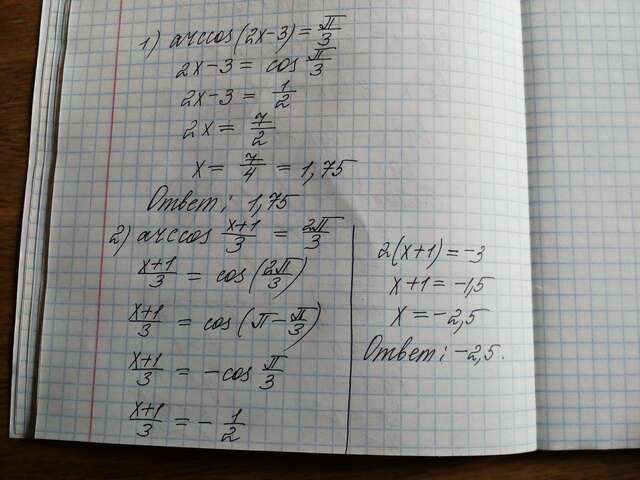 1) arccos(2x-3) = π/3
2x-3 = cos π/3
2x-3 = 1/2
2x = 7/2
x = 7/4 = 1,75
Ответ: 1,75
2) arccos (x+1)/3 = 2π/3
(x+1)/3 = cos(2π/3)
(x+1)/3 = cos(π - π/3)
(x+1)/3 = -cos π/3
(x+1)/3 = - 1/2
2(x+1) = -3
x+1 = -1,5
x = -2,5
Ответ: -2,5.